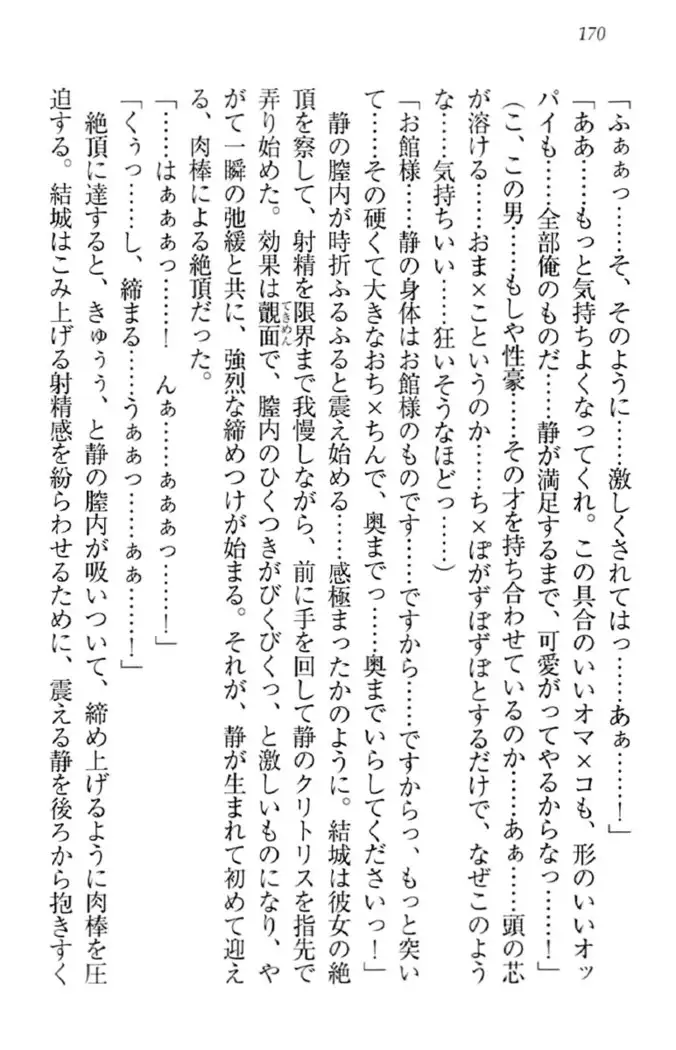 170
「ふぁぁっ……そ、そのように……激しくされてはっ……あぁ……！」
「ああ……もっと気持ちよくなってくれ。この具合のいいオマ×コも、形のいいオッ
パイも……全部俺のものだ……静が満足するまで、可愛がってやるからなっ……！」
（こ、この男……もしや性豪……その才を持ち合わせているのか……あぁ……頭の芯
が溶ける……おま×こというのか……ち×ぽがずぼずぼとするだけで、なぜこのよう
な……気持ちいい……狂いそうなほどっ……）
「お館様……静の身体はお館様のものです……ですから……ですからっ、もっと突い
て……その硬くて大きなおち×ちんで、奥までっ……奥までいらしてくださいっ！」
静の膣内が時折ふるふると震え始める……感極まったかのように。結城は彼女の絶
頂を察して、射精を限界まで我慢しながら、前に手を回して静のクリトリスを指先で
弄り始めた。効果は覿面で、膣内のひくつきがびくびくっ、と激しいものになり、や
てきめん
がて一瞬の弛緩と共に、強烈な締めつけが始まる。それが、静が生まれて初めて迎え
る、肉棒による絶頂だった。
「……はぁぁぁっ……！　んぁ……ぁぁぁっ……！」
「くぅっ……し、締まる……うぁぁっ……ぁぁ……！」
絶頂に達すると、きゅぅぅ、と静の膣内が吸いついて、締め上げるように肉棒を圧
迫する。結城はこみ上げる射精感を紛らわせるために、震える静を後ろから抱きすく